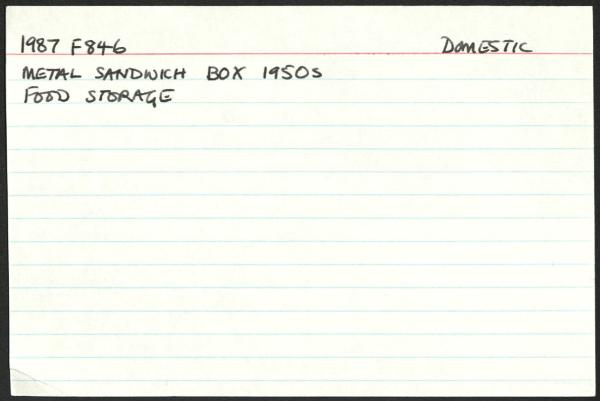 1987 F846 DOMESTIC
METAL SANDWICH BOX 1950S
FOOD STORAGE